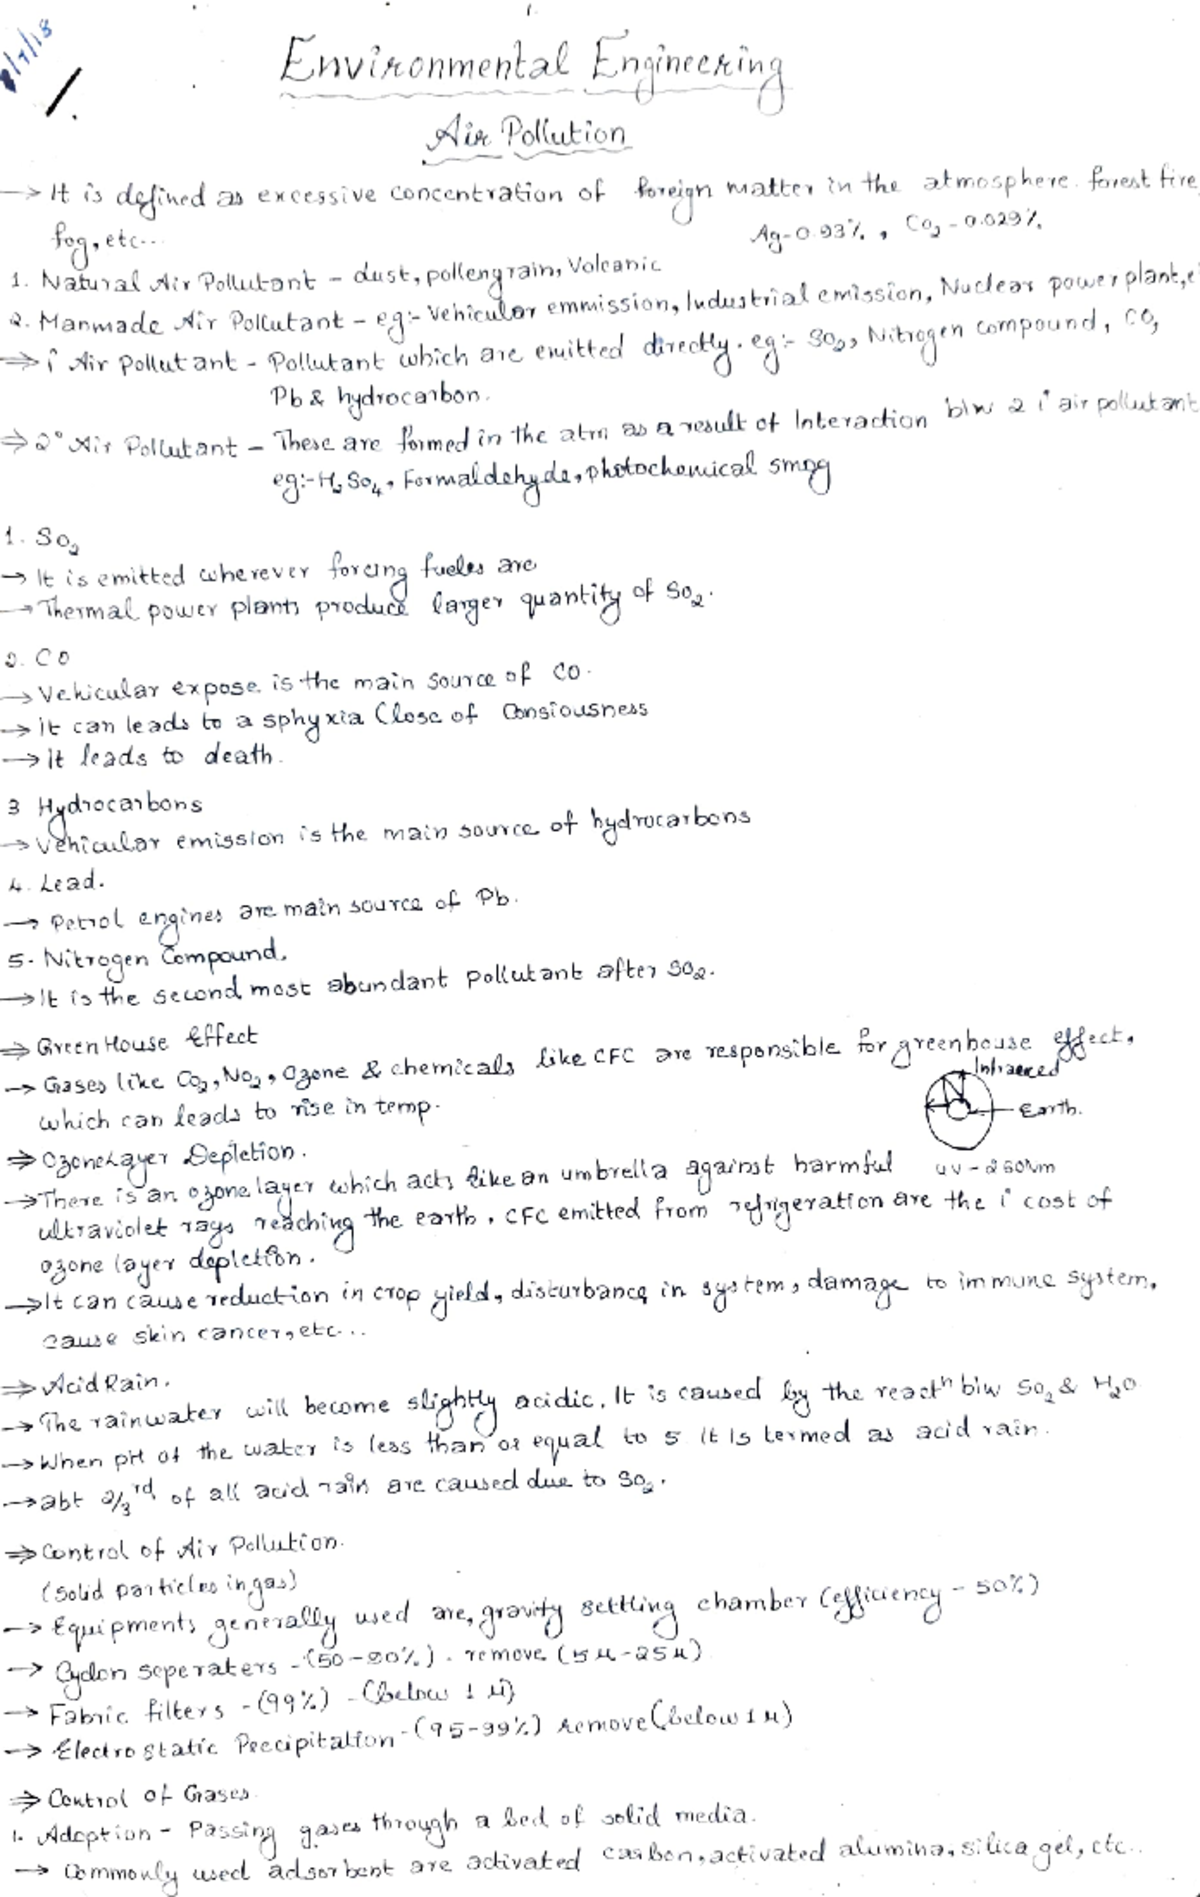 8/7/18
1.
Environmental Engineering
Air Pollution
→ It is defined as excessive concentration of foreign matter in the atmosphere. forest fire
fog, etc...
Ag-0.93%, CO2-0.029%
1. Natural Air Pollutant - dust, pollengrain, Volcanic
2. Manmade Air Pollutant - eg:- Vehicular emmission, Industrial emission, Nuclear power plant,
⇒ i° Air Pollutant - Pollutant which are emitted directly. eg:- SO2, Nitrogen compound, CO,
Pb & hydrocarbon.
⇒ 2° Air Pollutant - These are formed in the atm as a result of Interaction b/w 2 i° air pollutant
eg:- H2SO4, Formaldehyde, photochemical smog
1. SO2
→ It is emitted wherever forcing fueles are
→ Thermal power plants produce larger quantity of SO2.
2. CO
→ Vehicular expose is the main source of CO.
→ it can leads to a sphyxia (lose of Consiousness
→ it leads to death.
3 Hydrocarbons
→ Vehicular emission is the main source of hydrocarbons
4. Lead.
→ Petrol engines are main source of Pb.
5. Nitrogen Compound.
→ It is the second most abundant pollutant after SO2.
⇒ Green House Effect
→ Gases like CO2, NO2, Ozone & chemicals like CFC are responsible for greenhouse effect,
which can leads to rise in temp.
Infraered
Earth.
⇒ Ozone Layer Depletion.
→ There is an ozone layer which acts like an umbrella against harmful
UV - 260nm
ultraviolet rays reaching the earth, CFC emitted from refrigeration are the i° cost of
ozone layer depletion.
→ It can cause reduction in crop yield, disturbance in system, damage to immune system,
cause skin cancer, etc...
⇒ Acid Rain.
→ The rainwater will become slightly acidic. It is caused by the reactn b/w SO2 & H2O
→ When pH of the water is less than or equal to 5 it is termed as acid rain.
→ abt 2/3rd of all acid rain are caused due to SO2.
⇒ Control of Air Pollution.
(Solid particles in gas)
→ Equipments generally used are, gravity settling chamber (efficiency - 50%)
→ Cyclon seperaters - (50-90%). remove (5μ-25μ)
→ Fabric filters - (99%) - (below 1 μ)
→ Electro static Precipitation - (95-99%) remove (below 1 μ)
⇒ Control of Gases.
1. Adoption - Passing gases through a bed of solid media.
→ Commonly used adsorbent are activated carbon, activated alumina, silica gel, etc..